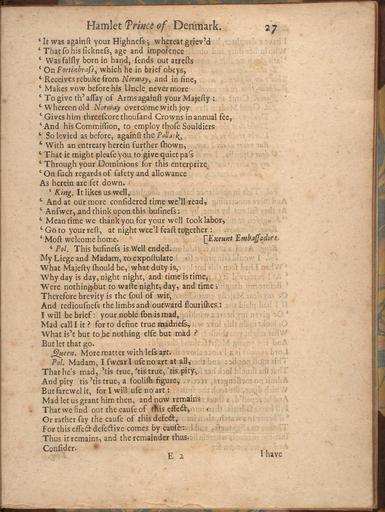 Hamlet Prince of Denmark. 27
‘ It was against your Highness; whereat griev'd
‘ That so his sickness, age and impotence
‘ Was falsly born in hand, sends out arrests
‘ On Fortinbrass, which he in brief obeys,
‘ Receives rebuke from Norway, and in fine,
‘ Makes vow before his Uncle never more
‘ To give th' assay of Arms against your Majesty:
‘ Whereon old Norway overcome with joy
‘ Gives him threescore thousand Crowns in annual fee,
‘ And his Commission, to employ those Souldiers
‘ So levied as before, against the Polack,
‘ With an entreaty herein further shown,
‘ That it might please you to give quiet pass
‘ Through your Dominions for this enterprize
‘ On such regards of safety and allowance
As herein are set down.
‘ King. It likes us well,
‘ And at our more considered time we'll read,
‘ Answer, and think upon this business:
‘ Mean time we thank you for your well took labor,
‘ Go to your rest, at night wee'l feast together:
‘ Most welcome home. [Exeunt Embassadors.
‘ Pol. This business is Well ended.
My Liege and Madam, to expostulate
What Majesty should be, what duty is,
Why day is day, night night, and time is time,
Were nothing but to waste night, day, and time;
Therefore brevity is the soul of wit,
And tediousness the limbs and outward flourishes:
I will be brief: your noble son is mad,
Mad call I it? for to define true madness,
What is't but to be nothing else but mad?
But let that go.
Queen. More matter with less art.
Pol. Madam, I swear I use no art at all,
That he's mad, 'tis true, 'tis true, 'tis pity,
And pity 'tis 'tis true, a foolish figure,
But farewel it, for I will use no art:
Mad let us grant him then, and now remains
That we find out the cause of this effect,
Or rather say the cause of this defect,
For this effect defective comes by cause:
Thus it remains, and the remainder thus.
Consider.
E 2 I have